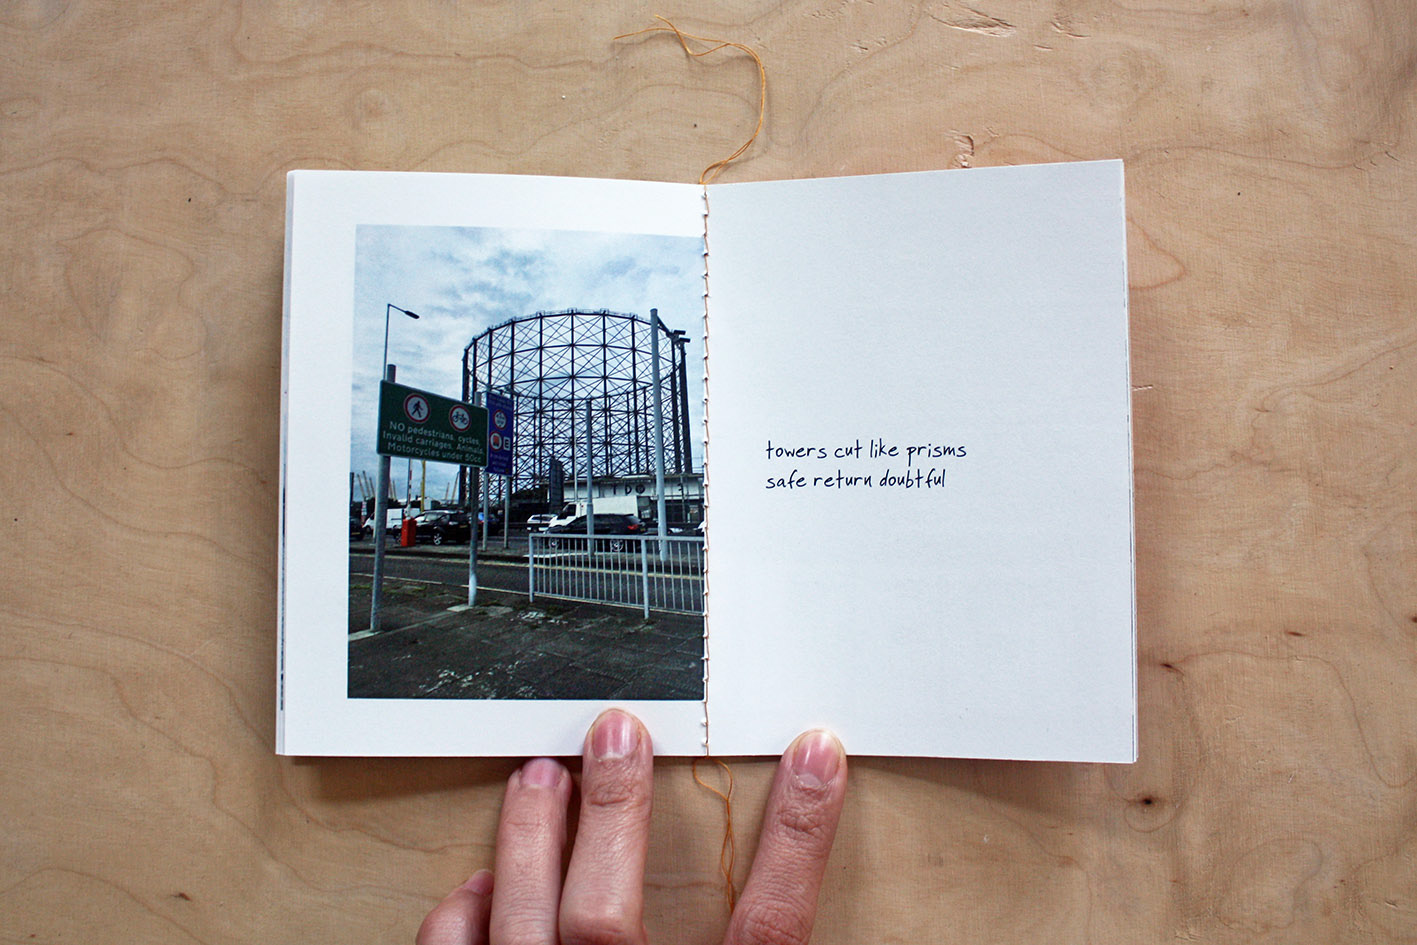 NO pedestrians, cycles,
Invalid carriages, Animals,
Motorcycles under 50cc
towers cut like prisms
safe return doubtful